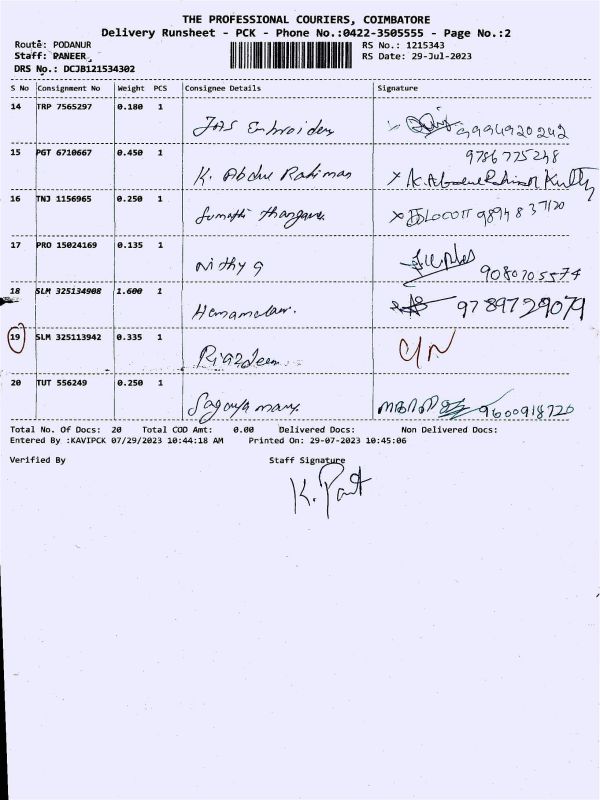 THE PROFESSIONAL COURIERS, COIMBATORE
Delivery Runsheet - PCK - Phone No.:0422-3505555 - Page No.:2
Route: PODANUR RS No.: 1215343
Staff: PANEER RS Date: 29-Jul-2023
DRS No.: DCJB121534302
S No Consignment No Weight PCS Consignee Details Signature
14 TRP 7565297 0.180 1
JAS Embroidery 9994920242
15 PGT 6710667 0.450 1 9786775248
K. Abdul Rahiman
16 TNJ 1156965 0.250 1
Sumathi
17 PRO 15024169 0.135 1
Nithy 9080705574
18 SLM 325134908 1.600 1
9789729079
19 SLM 325113942 0.335 1
Riazdeen C/N
20 TUT 556249 0.250 1
Sagaya mary 9600918720
Total No. Of Docs: 20 Total COD Amt: 0.00 Delivered Docs: Non Delivered Docs:
Entered By :KAVIPCK 07/29/2023 10:44:18 AM Printed On: 29-07-2023 10:45:06
Verified By Staff Signature